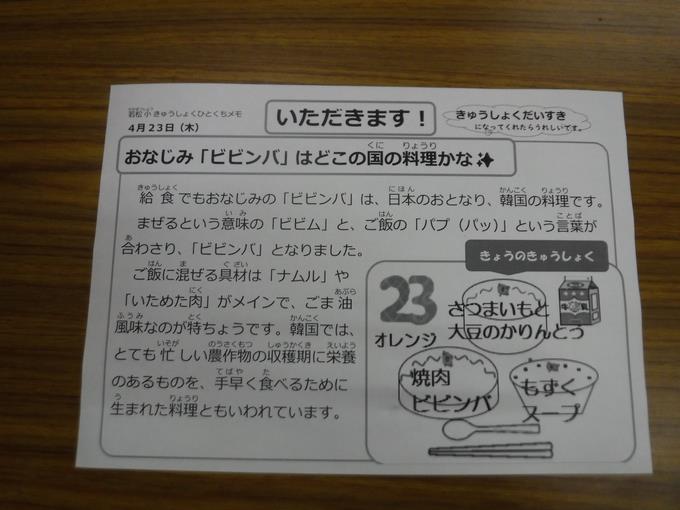 若松小きゅうしょくひとくちメモ
4月23日（木）
いただきます！
きゅうしょくだいすき
になってくれたらうれしいです。
おなじみ「ビビンバ」はどこの国の料理かな
給食でもおなじみの「ビビンバ」は、日本のおとなり、韓国の料理です。
まぜるという意味の「ビビム」と、ご飯の「パプ（パッ）」という言葉が
合わさり、「ビビンバ」となりました。
ご飯に混ぜる具材は「ナムル」や
「いためた肉」がメインで、ごま油
風味なのが特ちょうです。韓国では、
とても忙しい農作物の収穫期に栄養
のあるものを、手早く食べるために
生まれた料理ともいわれています。
きょうのきゅうしょく
23
オレンジ
さつまいもと
大豆のかりんとう
牛乳
焼肉
ビビンバ
もずく
スープ